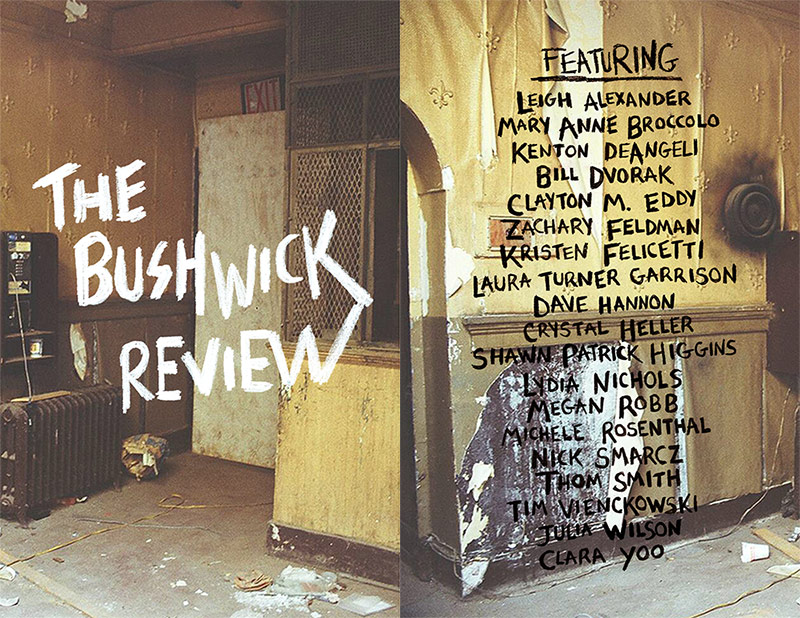 EXIT
THE
BUSHWICK
REVIEW
FEATURING
LEIGH ALEXANDER
MARY ANNE BROCCOLO
KENTON DEANGELI
BILL DVORAK
CLAYTON M. EDDY
ZACHARY FELDMAN
KRISTEN FELICETTI
LAURA TURNER GARRISON
DAVE HANNON
CRYSTAL HELLER
SHAWN PATRICK HIGGINS
LYDIA NICHOLS
MEGAN ROBB
MICHELE ROSENTHAL
NICK SMARCZ
THOM SMITH
TIM VIENCKOWSKI
JULIA WILSON
CLARA YOO